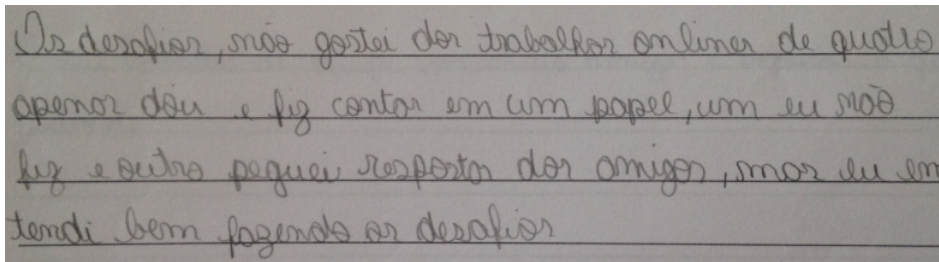 Os desafios, não gostei dos trabalhos onlines de quatro
apenas dou e fiz contas em um papel, um eu não
fiz e outro peguei respostas dos amigos, mas eu en
tendi bem fazendo os desafios